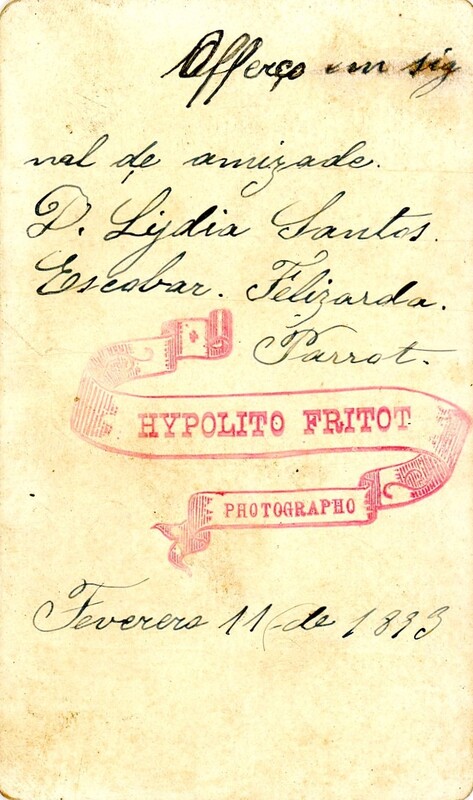 Offerço em sig
nal de amizade.
D. Lydia Santos.
Escobar. Felizarda.
Parrot.
HYPOLITO FRITOT
PHOTOGRAPHO
Feverero 11 de 1893